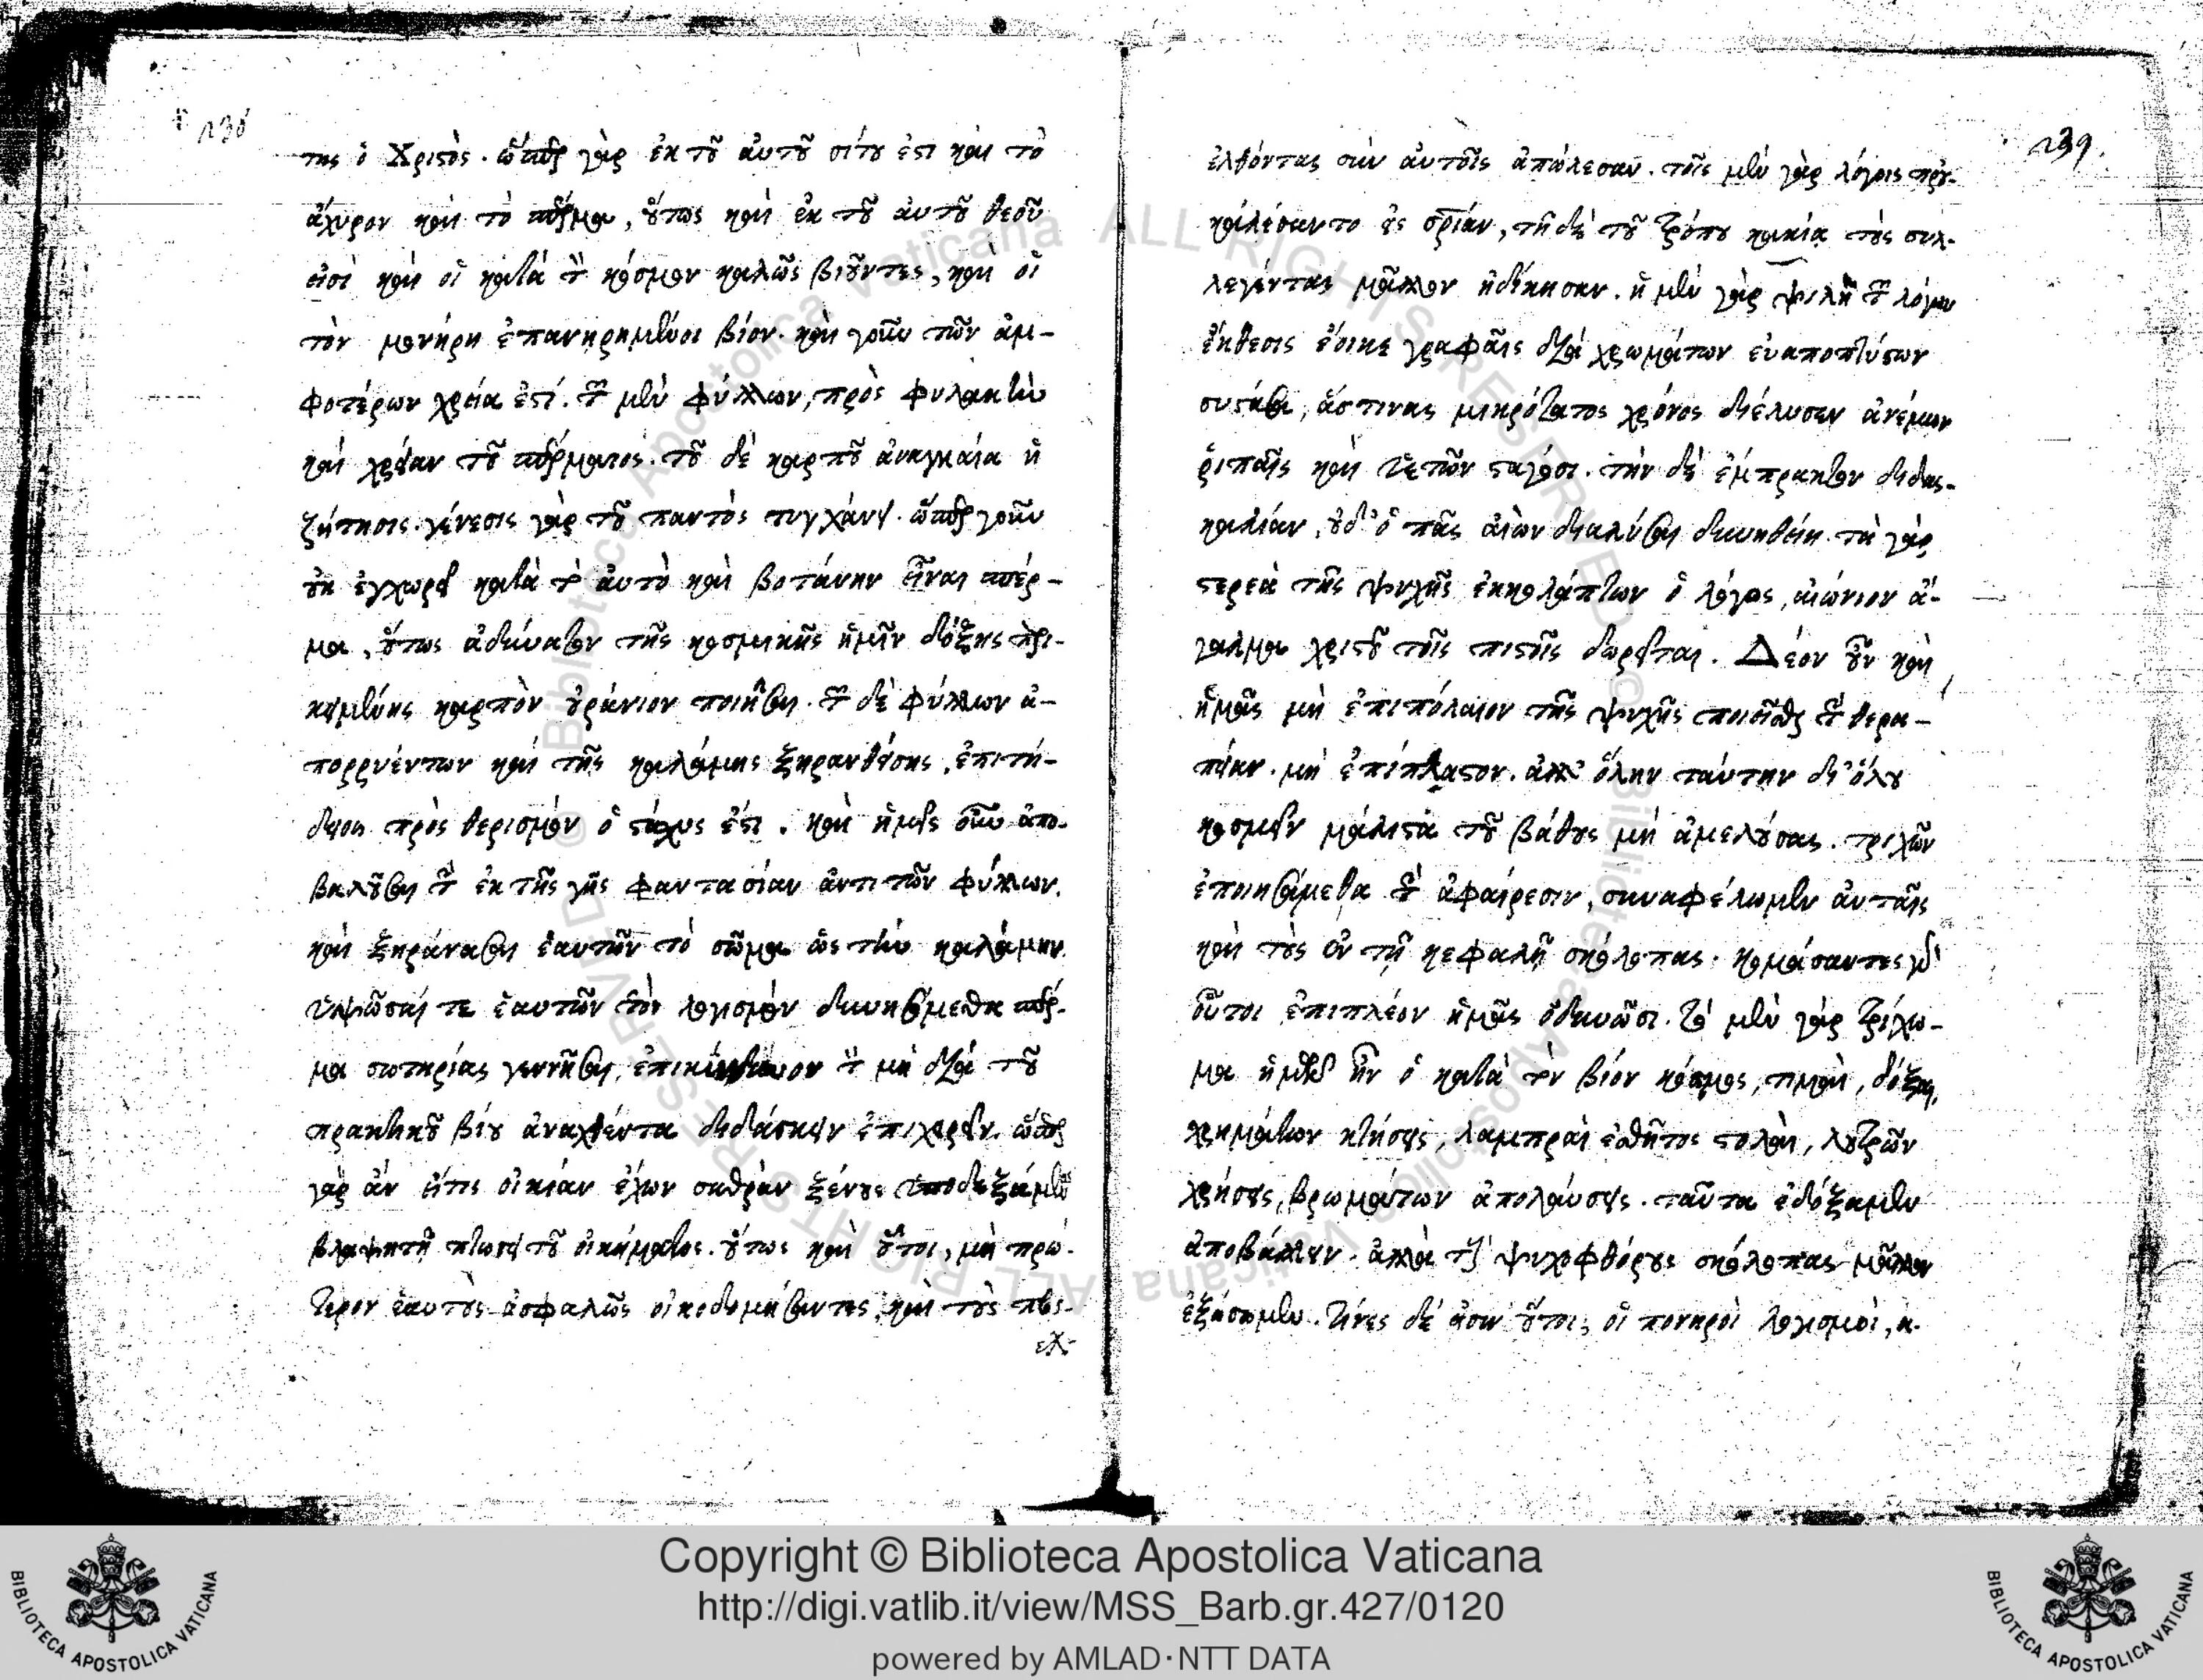 238
της ὁ Χριστὸς. ὥσπερ γὰρ ἐκ τοῦ αὐτοῦ σίτου ἐστι καὶ τὸ
ἄχυρον καὶ τὸ σπέρμα, οὕτως καὶ ἐκ τοῦ αὐτοῦ θεοῦ
εἰσὶ καὶ οἱ κατὰ τὸν κόσμον καλῶς βιοῦντες, καὶ οἱ
τὸν μονήρη ἐπανηρημένοι βίον. καὶ γοῦν τῶν ἀμ-
φοτέρων χρεία ἐστί. τῶν μὲν φύλλων, πρὸς φυλακὴν
καὶ χρείαν τοῦ σπέρματος. τοῦ δὲ καρποῦ ἀναγκαία ἡ
ζήτησις. γένεσις γὰρ τοῦ παντὸς τυγχάνει. ὥσπερ γοῦν
οὐκ ἐγχωρεῖ κατὰ τὸ αὐτὸ καὶ βοτάνην εἶναι σπέρ-
μα, οὕτως ἀδύνατον τῆς κοσμικῆς ἡμῖν δόξης περι-
κειμένης καρπὸν οὐράνιον ποιῆσαι. τῶν δὲ φύλλων ἀ-
πορρυέντων καὶ τῆς καλάμης ξηρανθείσης, ἐπιτή-
δειος πρὸς θερισμὸν ὁ στάχυς ἐστι. καὶ ἡμεῖς οὖν ἀπο-
βαλοῦσαι τὴν ἐκ τῆς γῆς φαντασίαν ἀντι τῶν φύλλων.
καὶ ξηράνασαι ἑαυτῶν τὸ σῶμα ὡς τὴν καλάμην.
ὑψῶσαί τε ἑαυτῶν τὸν λογισμὸν δυνησόμεθα σπέρ-
μα σωτηρίας γεννῆσαι. ἐπικίνδυνον τὸν μὴ διὰ τοῦ
πρακτικοῦ βίου ἀναχθέντα διδάσκειν ἐπιχειρεῖν. ὥσπερ
γὰρ ἂν εἴτις οἰκίαν ἔχων σαθρὰν ξένους ὑποδεξάμενος
βλάψῃ τῇ πτώσει τοῦ οἰκήματος. οὕτως καὶ οὗτοι, μὴ πρώ-
τερον ἑαυτοὺς ἀσφαλῶς οἰκοδομήσαντες, καὶ τοὺς προς-
ελ-
239.
ελθόντας σὺν αὐτοῖς ἀπώλεσαν. τοῖς μὲν γὰρ λόγοις πρου-
καλέσαντο εἰς σωτηρίαν, τῇ δὲ τοῦ τρόπου κακίᾳ τοὺς συλ-
λεγέντας μᾶλλον ἠδίκησαν. ἡ μὲν γὰρ ψιλὴ τῶν λόγων
ἔκθεσις ἔοικε γραφαῖς διὰ χρωμάτων εὐαποπτύστων
συστᾶσαι, ἅστινας μικρότατος χρόνος διέλυσεν ἀνέμων
ῥιπαῖς καὶ ὑετῶν σταγόσι. τὴν δὲ ἔμπρακτον διδας-
καλίαν, οὐδ' ὁ πᾶς αἰὼν διαλῦσαι δυνηθείη. τὰ γὰρ
στερεὰ τῆς ψυχῆς ἐκκολάπτων ὁ λόγος, αἰώνιον ἄ-
γαλμα χριστοῦ τοῖς πιστοῖς δωρεῖται. Δέον οὖν καὶ
ἡμᾶς μὴ ἐπιπόλαιον τῆς ψυχῆς ποιεῖσθαι τὴν θερα-
πείαν. μὴ ἐπίπλαστον. ἀλλ' ὅλην ταύτην δι' ὅλου
κοσμεῖν μάλιστα τοῦ βάθους μὴ ἀμελούσας. τριχῶν
ἐποιησάμεθα τὴν ἀφαίρεσιν, συναφέλωμεν αὐταῖς
καὶ τοὺς ἐν τῇ κεφαλῇ σκόλοπας. κομάσαντες γὰρ
οὗτοι ἐπιπλέον ἡμᾶς ὀδυνῶσι. τὸ μὲν γὰρ τρίχω-
μα ἡμῶν ἦν ὁ κατὰ τὸν βίον κόσμος, τιμαὶ, δόξαι,
χρημάτων κτήσεις, λαμπραὶ ἐσθῆτος στολαὶ, λουτρῶν
χρήσεις, βρωμάτων ἀπολαύσεις. ταῦτα ἐδόξαμεν
ἀποβάλλειν. ἀλλὰ τοὺς ψυχοφθόρους σκόλοπας μᾶλλον
ἐξεάσωμεν. τίνες δέ εἰσιν οὗτοι, οἱ πονηροὶ λογισμοὶ, κ-
Copyright © Biblioteca Apostolica Vaticana
http://digi.vatlib.it/view/MSS_Barb.gr.427/0120
powered by AMLAD·NTT DATA
BIBLIOTECA APOSTOLICA VATICANA
BIBLIOTECA APOSTOLICA VATICANA